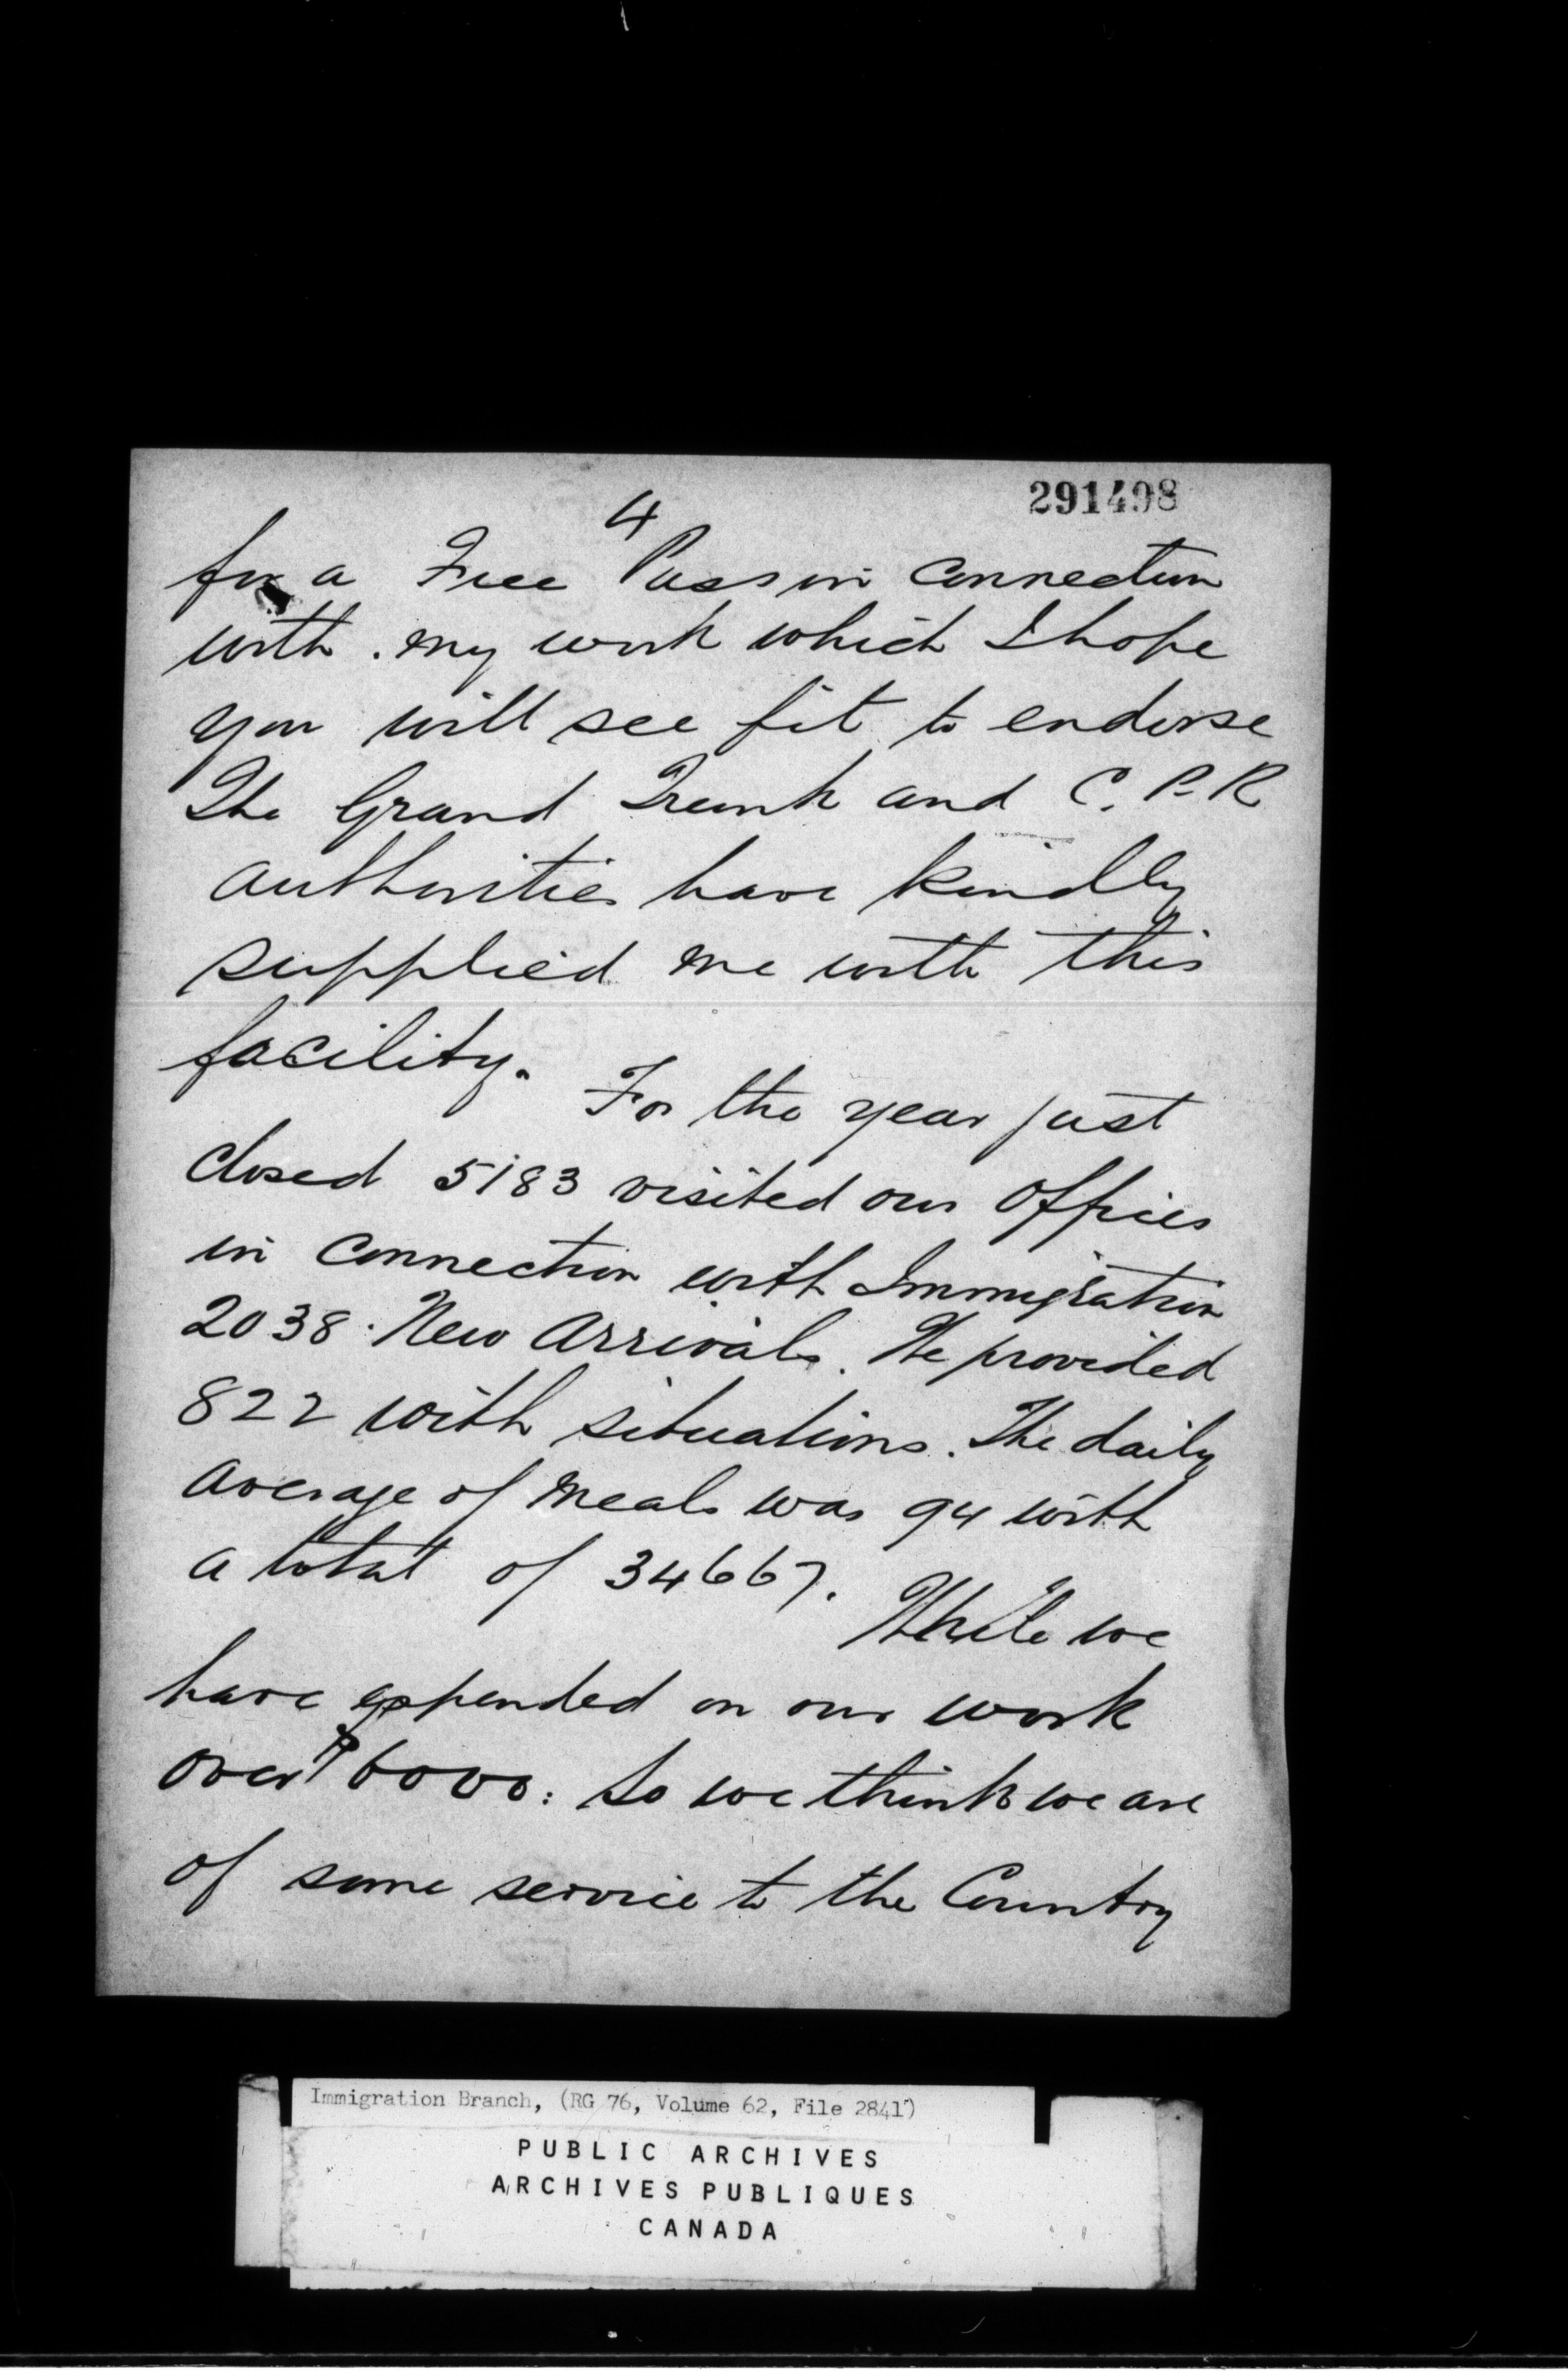 291498
4
for a Free Pass in connection
with my work which I hope
you will see fit to endorse
The Grand Trunk and C. P. R
authorities have kindly
supplied me with this
facility.
For the year just
closed 5183 visited our offices
in connection with Immigration
2038 New Arrivals. We provided
822 with situations. The daily
average of meals was 94 with
a total of 34667.
While we
have expended on our work
over $6000: so we think we are
of some service to the Country
Immigration Branch, (RG 76, Volume 62, File 2841)
PUBLIC ARCHIVES
ARCHIVES PUBLIQUES
CANADA